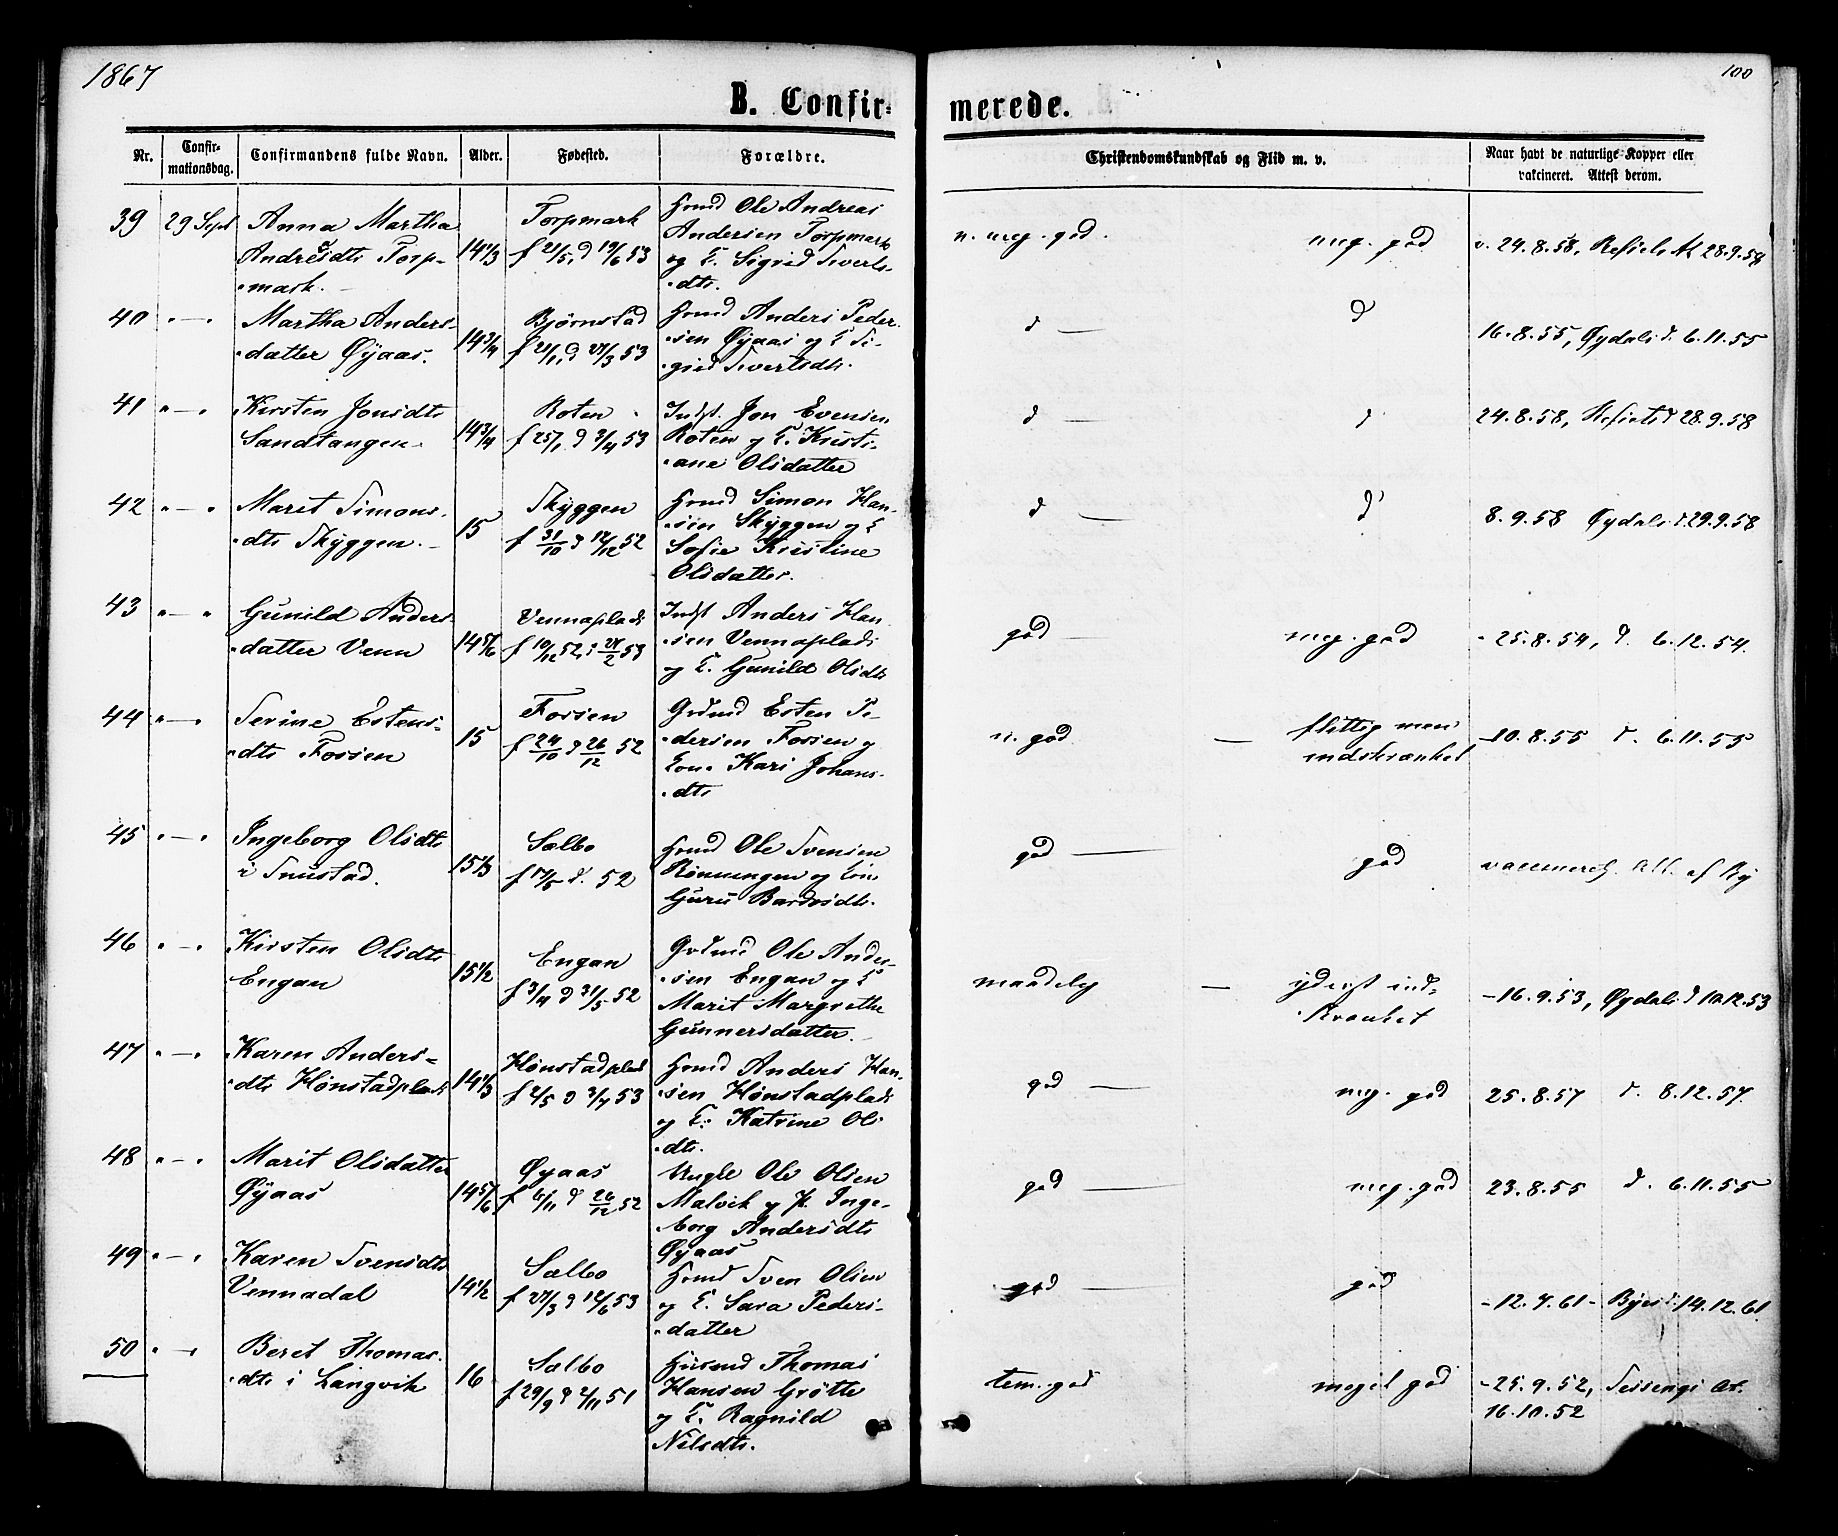 1867
100
B. Confir-
merede.
Nr.
Confir-
mationsdag.
Confirmandens fulde Navn.
Alder.
Fødested.
Forældre.
Christendomskundskab og Flid m. v.
Naar havt de naturlige Kopper eller
vakcineret. Attest derom.
39 29 Sept Anna Martha
Andersdtr Torp-
mark.
14 1/3
Torpmark
f 21/5, d 19/6 53
Hmd Ole Andreas
Andersen Torpmark
og E. Sigrid Siverts-
dtr.
n. meg. god. meg. god
v. 24.8.58, 28.9.58
40 " — " Martha Anders-
datter Øÿaas.
14 3/4
Bjørnstad
f 21/1, d 28/3 53
Hmd Anders Peder-
sen Øÿaas og E Si-
grid Sivertsdtr.
d — d
16.8.55, Øydals d. 6.11.55
41 " — " Kirsten Jonsdtr
Sandtangen.
14 3/4
Roten
f 25/1 d 3/4 53
Indst. Jon Evensen
Roten og E. Kristi-
ane Olsdatter
d — d
24.8.58, d 28.9.58
42 " — " Marit Simons-
dtr Skÿggen.
15
Skÿggen
f 31/10 d 12/12 52
Hmd Simon Han-
sen Skÿggen og E
Sofie Kristine
Olsdatter.
d — d
8.9.58 Øydals d. 29.9.58
43 " — " Gunild Anders-
datter Venn
14 5/6
Vennaplads
f 10/12 52, d 28/2 53
Indst Anders Han-
sen Vennaplads
og E. Gunild Olsdtr
god — meg. god
- 25.8.54, d. 6.12.54.
44 " — " Serine Estens-
dtr Fossen
15
Fossen
f 24/10 d 26/12 52
Grdmd Esten Pe-
dersen Fossen og
Kone Kari Johans-
dtr
n. god — flittig men
indskrænket
- 10.8.55 d. 6.11.55
45 " — " Ingeborg Olsdtr
i Snustad.
15 1/3
Sælbo
f d. 52
Hmd Ole Svensen
Rønningen og Kone
Guru Bardosdtr.
god — god
vaccineret. Att. af By
46 " — " Kirsten Olsdtr
Engan
15 1/2
Engan
f 3/4 d 31/5 52
Grdmd Ole Ander-
sen Engan og E
Marit Margrethe
Gunnersdatter.
maadelig — yderst ind-
skrænket
- 16.9.53, Øydals d 10.12.53
47 " — " Karen Anders-
dtr Hønstadplads
14 1/3
Hønstadplads
f 2/5 d 3/7 53
Hmd Anders Han-
sen Hønstadplads
og E. Katrine Ols-
dtr.
god — meg. god
25.8.57 d. 8.12.57.
48 " — " Marit Olsdatter
Øÿaas
14 5/6
Øyaas
f 6/11 d 26/12 52
Ungk Ole Olsen
Malvik og P. Inge-
borg Andersdtr
Øyaas
god — meg. god
23.8.55 d. 6.11.55
49 " — " Karen Svensdtr
Vennadal
14 1/2
Sælbo
f 27/3 d 12/6 53
Hmd Sven Olsen
og E. Sara Peders-
datter
god — god
- 12.7.61 - Byes d. 14.12.61.
50 " — " Beret Thomas-
dtr i Langvik
16
Sælbo
f 29/9 d 2/11 51
Husmd Thomas
Hansen Grøtte
og E. Ragnild
Nilsdtr.
tem. god meget god
- 25.9.52, At.
16.10.52